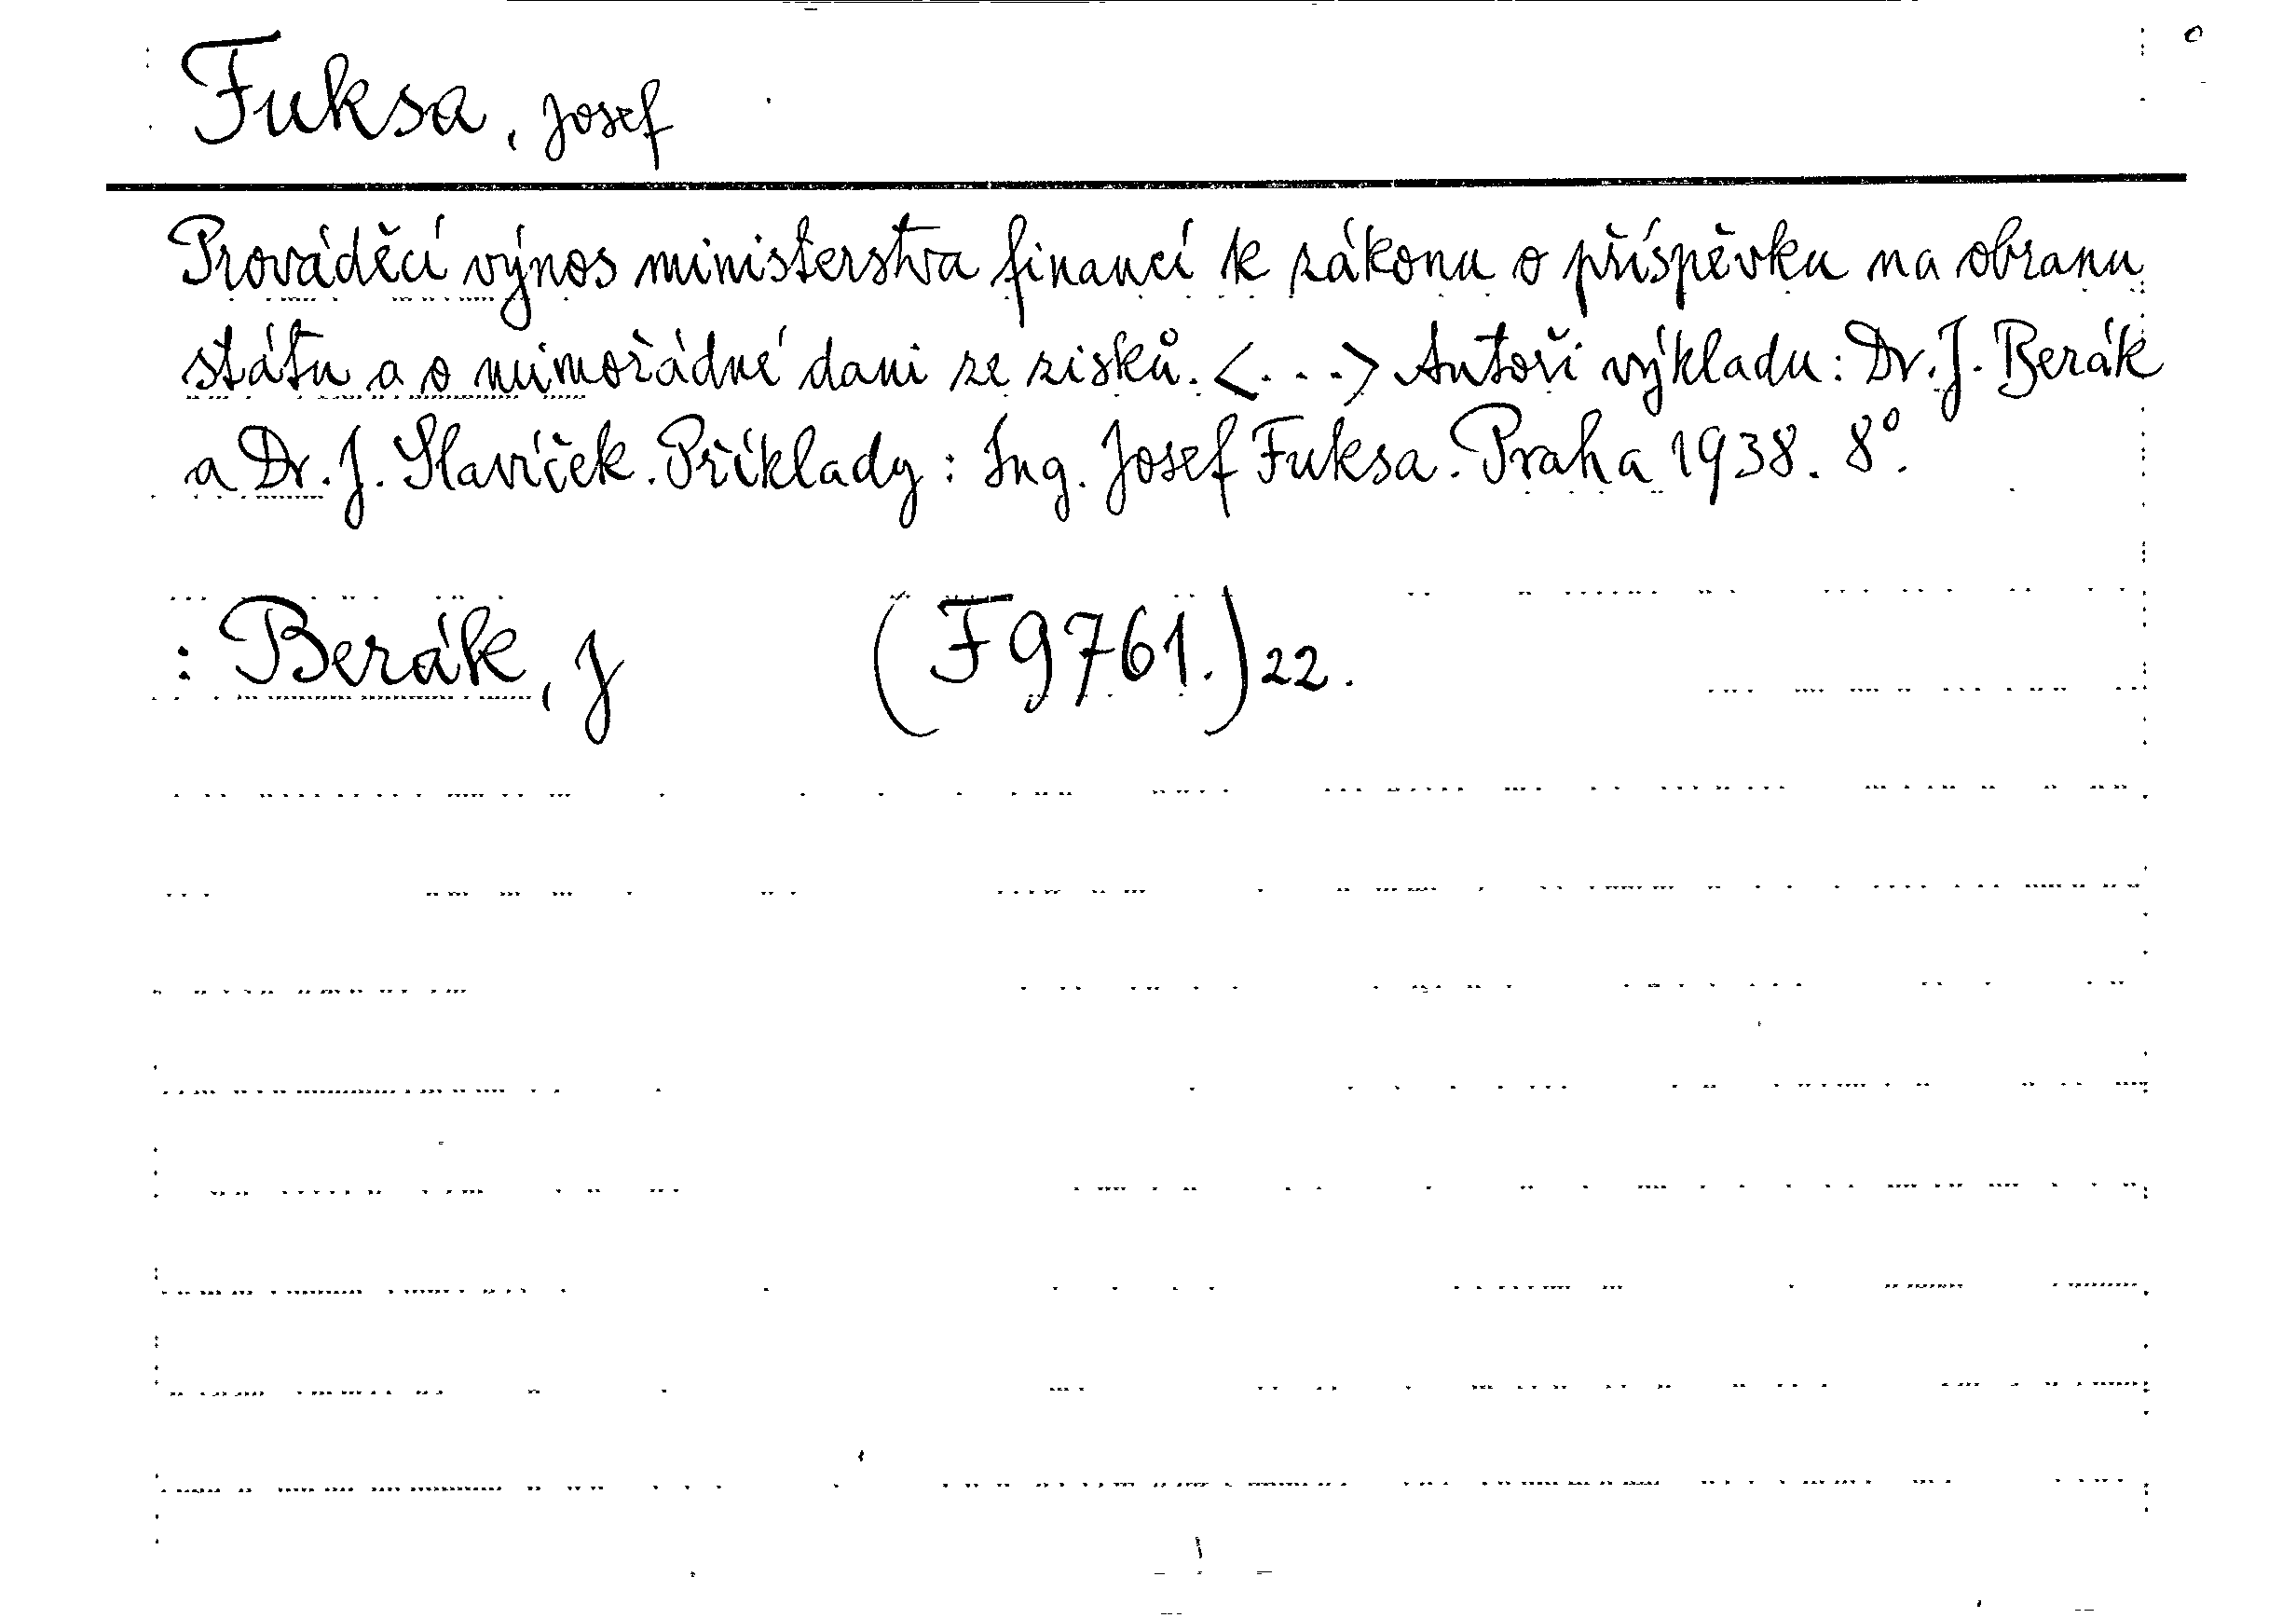 Fuksa, Josef
Prováděcí výnos ministerstva financí k zákonu o příspěvku na obranu
státu a o mimořádné dani ze zisků. <...> Autoři výkladu: Dr. J. Berák
a Dr. J. Slavíček. Příklady: Ing. Josef Fuksa. Praha 1938. 8°.
: Berák, J (F9761.) 22.